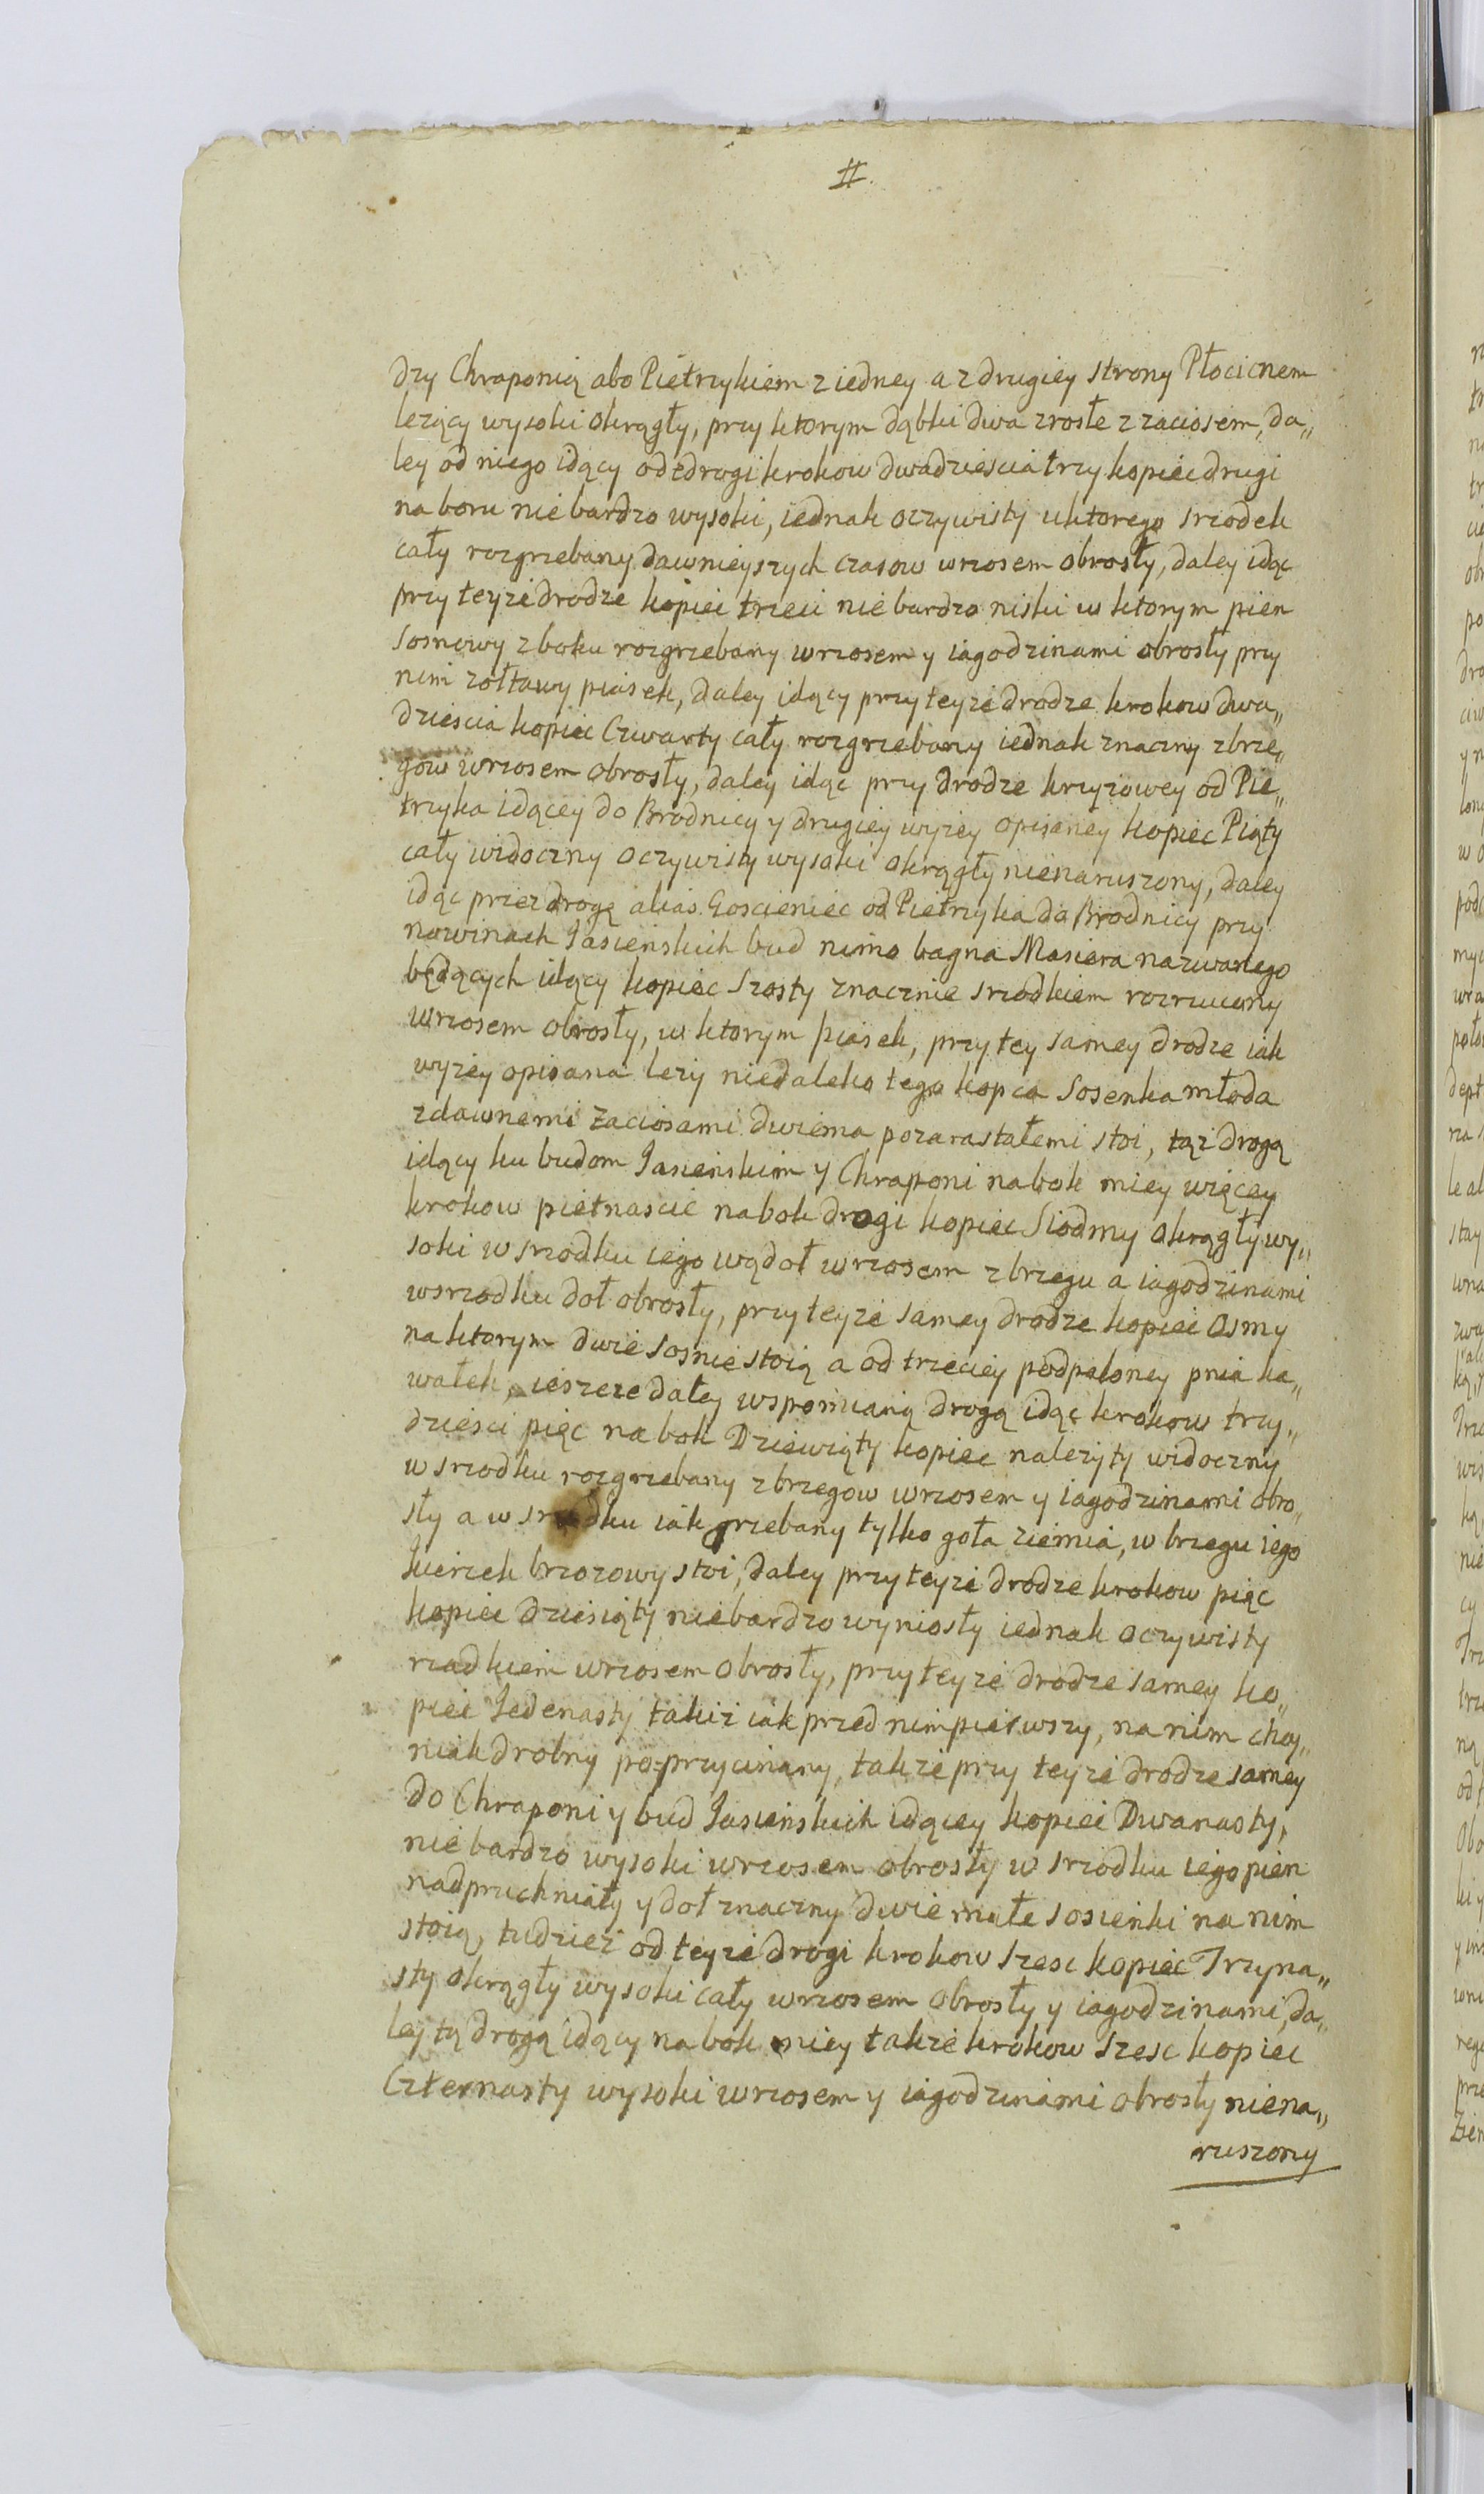 II.
dzy Chraponią abo Pietrzykiem z iedney a z drugiey strony Płocicnem
lezący wysoki okrągły, przy ktorym dąbki dwa zrosłe z zaciosem, da„
ley od niego idący od drogi krokow dwadziescia trzy kopiec drugi
na boru nie bardzo wysoki, iednak oczywisty u ktorego srzodek
cały rozgrzebany dawnieyszych czasow wrzosem obrosły, daley idąc
przy teyze drodze kopiec trzeci nie bardzo niski w ktorym pien
Sosnowy z boku rozgrzebany wrzosem y iagodzinami obrosły przy
nim zołtawy piasek, daley idący przy teyze drodze krokow dwa„
dziescia kopiec Czwarty cały rozgrzebany iednak znaczny z brze„
gow wrzosem obrosły, daley idąc przy drodze krzyzowey od Pie„
trzyka idącey do Brodnicy y drugiey wyzey opisaney kopiec Piąty
cały widoczny oczywisty wysoki okrągły nienaruszony, daley
idąc przez drogę alias Goscieniec od Pietrzyka do Brodnicy przy
nowinach Jasienskich bud nimo bagna Masiera nazwanego
będących idący kopiec Szosty znacznie srzodkiem rozrzucony
wrzosem obrosły, w ktorym piasek, przy tey samey drodze iak
wyzey opisana lezy niedaleko tego kopca Sosenka młoda
z dawnemi zaciosami dwiema pozarastałemi stoi, tąz drogą
idący ku budom Jasienskim y Chraponi na bok miey więcey
krokow pietnascie na bok drogi kopiec Siodmy okrągły wy„
soki w srzodku iego wądoł wrzosem z brzegu a iagodzinami
wsrzodku doł obrosły, przy teyze samey drodze kopiec osmy
na ktorym dwie sosnie stoią a od trzeciey podpaloney pnia ka„
wałek, ieszcze daley wspomnianą drogą idąc krokow trzy„
dziesci pięc na bok Dziewiąty kopiec nalezyty widoczny
w srzodku rozgrzebany z brzegow wrzosem y iagodzinami obro„
sły a w srzodku iak grzebany tylko goła ziemia, w brzegu iego
kierzek brzozowy stoi, daley przy teyze drodze krokow pięc
kopiec dziesiąty niebardzo wyniosły iednak oczywisty
rzadkiem wrzosem obrosły, przy teyze drodze samey ko„
piec Jedenasty takiz iak przed nim pierwszy, na nim choy„
niak drobny po=przycinany, takze przy teyze drodze samey
do Chraponi y bud Jasienskich idącey kopiec Dwanasty,
nie bardzo wysoki wrzosem obrosły w srzodku iego pien
nadpruchniały y doł znaczny dwie małe sosienki na nim
stoią, tudziez od teyze drogi krokow szesc kopiec Trzyna„
sty okrągły wysoki cały wrzosem obrosły y iagodzinami, da„
ley tą drogą idący na bok miey takze krokow szesc kopiec
Czternasty wysoki wrzosem y iagodzinami obrosły niena„
ruszony